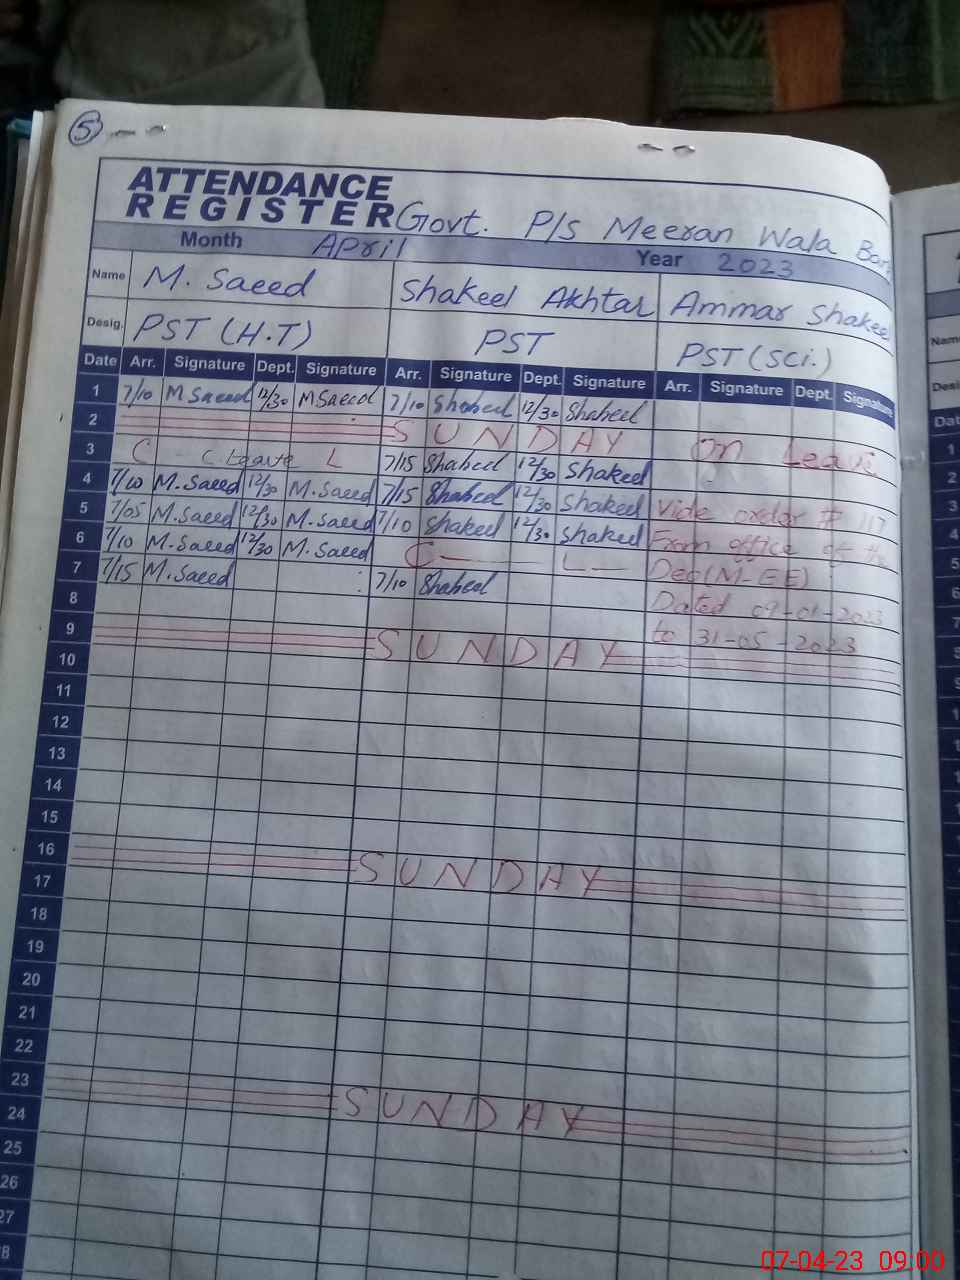 5
ATTENDANCE
REGISTER Govt. P/s Meeran Wala
Month April Year 2023
Name M. Saeed Shakeel Akhtar Ammar Shakeel
Desig. PST (H.T) PST PST (SCI.)
Date Arr. Signature Dept. Signature Arr. Signature Dept. Signature Arr. Signature Dept. Signature
1 7/10 M Saeed 12/30 M Saeed 7/10 Shakeel 12/30 Shakeel
2 SUNDAY On Leave
3 C C. Leave L 7/15 Shakeel 12/30 Shakeel
4 7/10 M. Saeed 12/30 M. Saeed 7/15 Shakeel 12/30 Shakeel Vide order # 117
5 7/05 M. Saeed 12/30 M. Saeed 7/10 Shakeel 12/30 Shakeel From office of the
6 7/10 M. Saeed 12/30 M. Saeed C L Deo (M-EE)
7 7/15 M. Saeed 7/10 Shakeel
8 Dated 09-01-2023
9 SUNDAY to 31-05-2023
10
11
12
13
14
15
16 SUNDAY
17
18
19
20
21
22
23 SUNDAY
24
25
26
27
28
Name
Date
1
2
3
4
5
6
7
07-04-23 09:00